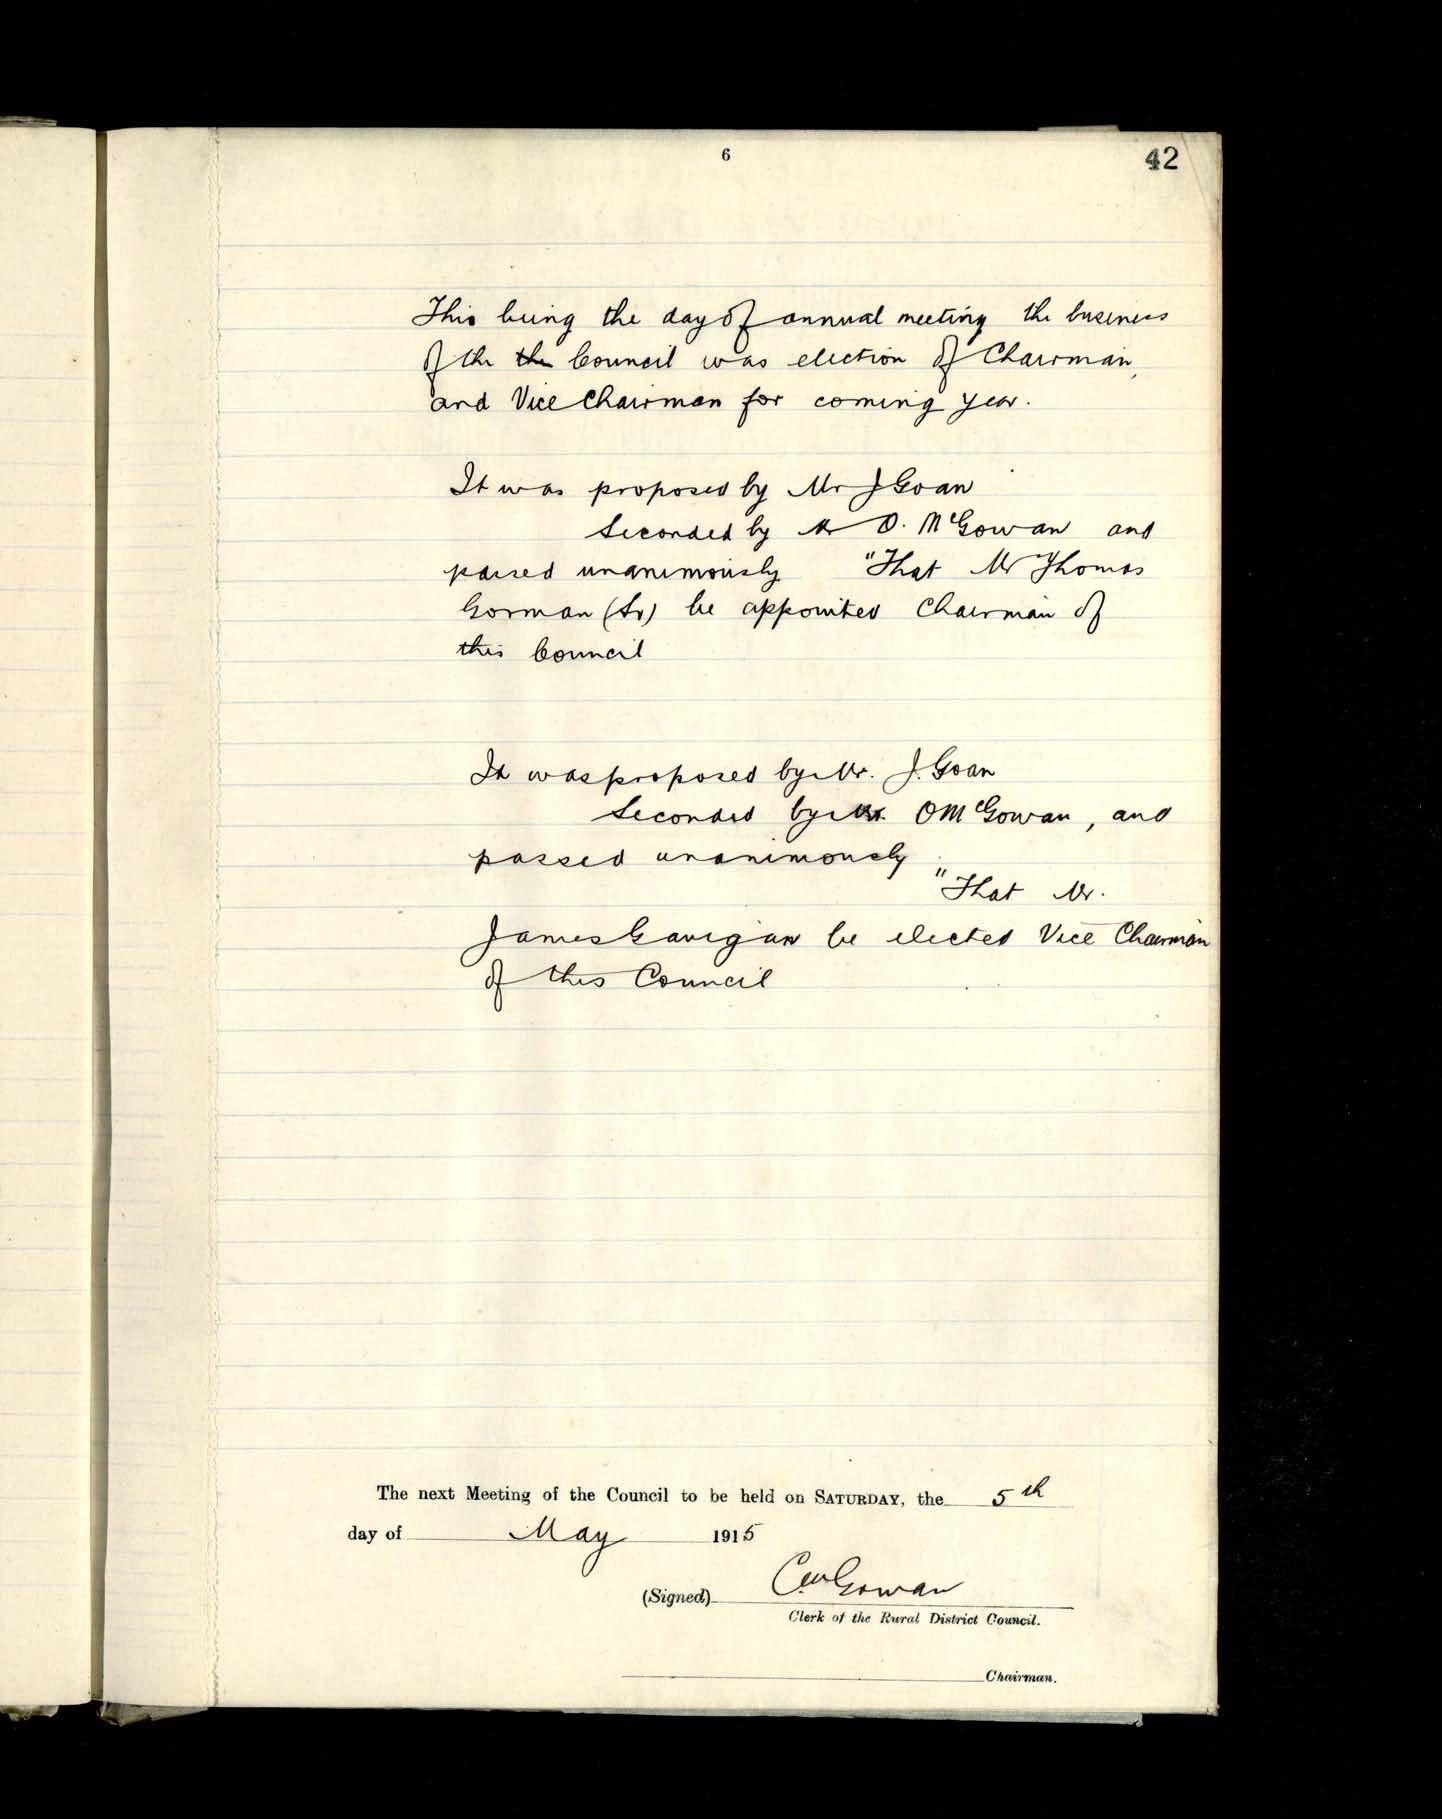 6
42
This being the day of annual meeting the business
of the the Council was election of Chairman,
and Vice Chairman for coming year.
It was proposed by Mr J Goan
Seconded by Mr O. McGowan and
passed unanimously "That Mr Thomas
Gorman (Sr) be appointed Chairman of
this Council
It was proposed by Mr. J. Goan
Seconded by Mr. O McGowan, and
passed unanimously
"That Mr.
James Gavigan be elected Vice Chairman
of this Council
The next Meeting of the Council to be held on SATURDAY, the 5th
day of May 1915
(Signed) Gowan
Clerk of the Rural District Council.
Chairman.